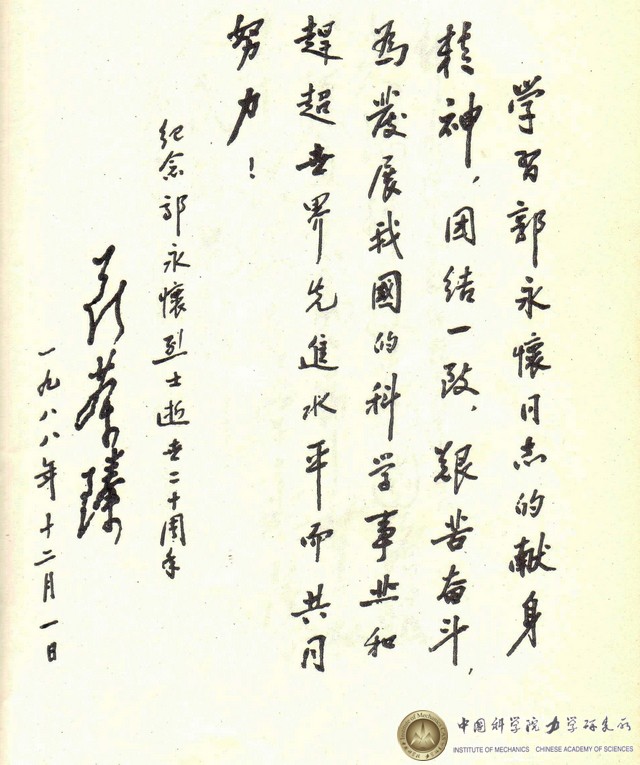 学習郭永懷同志的献身
精神，团结一致，艰苦奋斗，
為發展我國的科学事业和
趕超世界先進水平而共同
努力！
纪念郭永懷烈士逝世二十周年
聂荣臻
一九八八年十二月一日
中国科学院力学研究所
INSTITUTE OF MECHANICS CHINESE ACADEMY OF SCIENCES